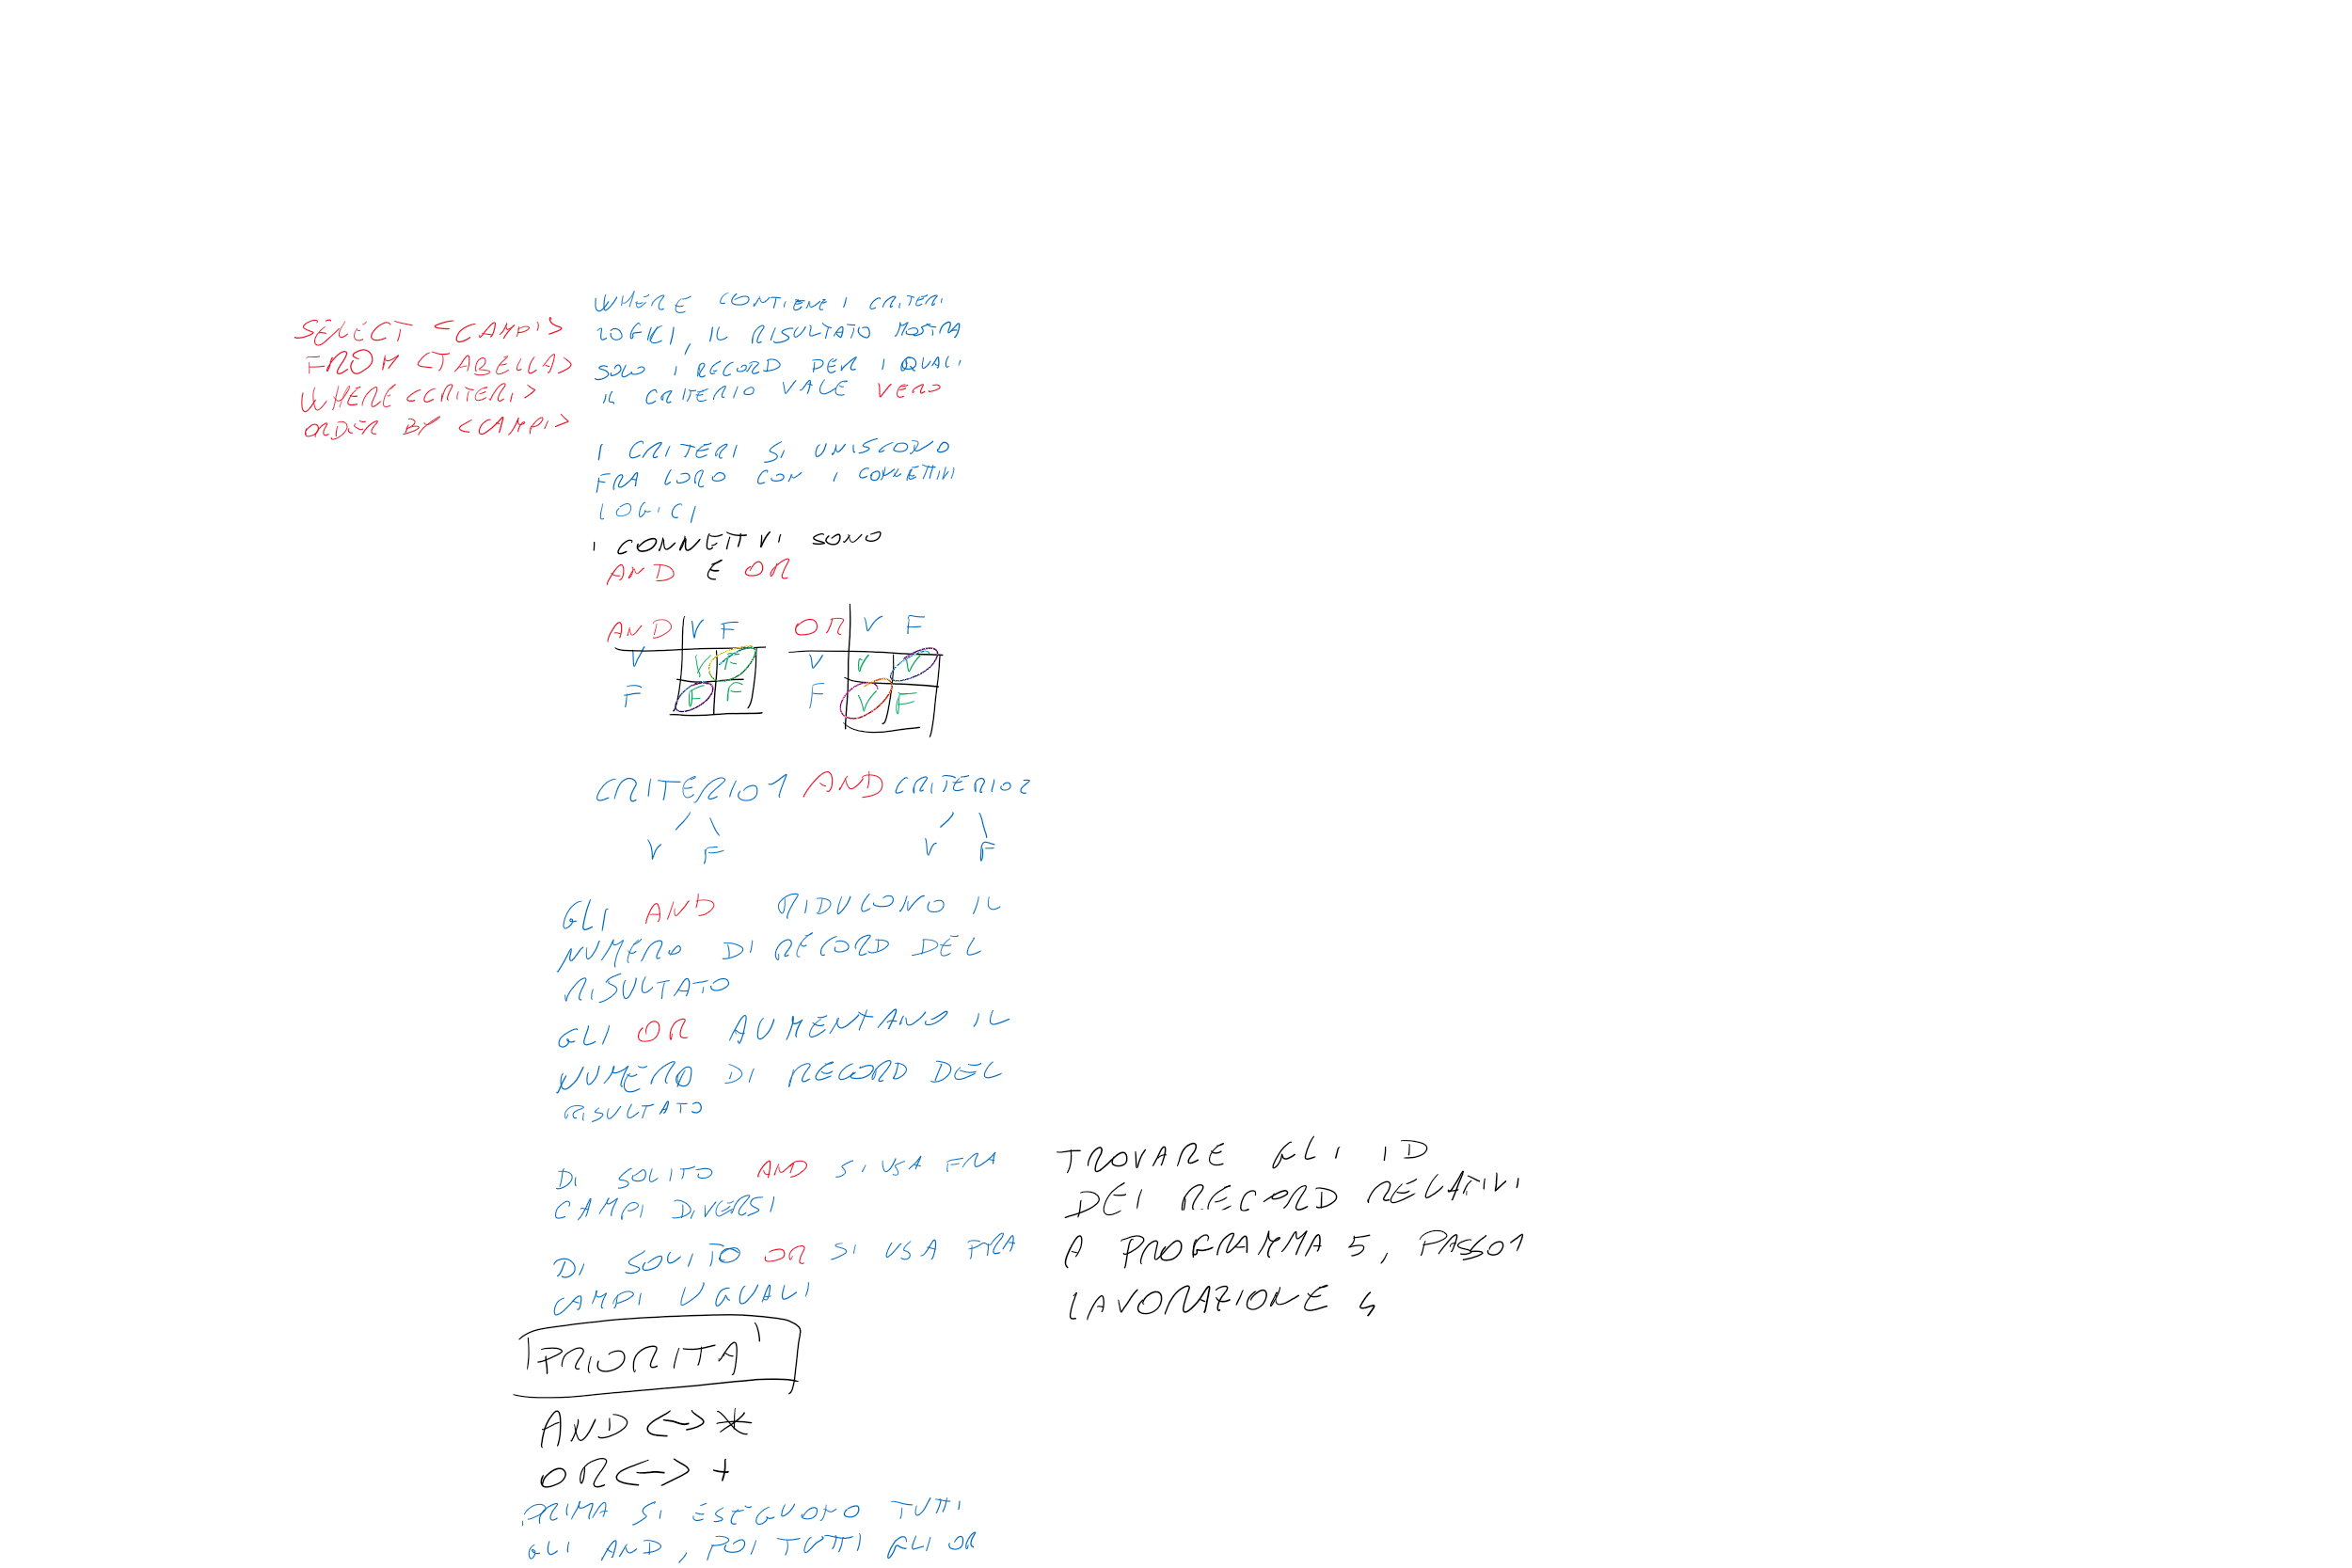 SELECT <CAMPI>
FROM <TABELLA>
WHERE <CRITERI>
ORDER BY <CAMPI>
WHERE CONTIENE I CRITERI
LOGICI, IL RISULTATO MOSTRA
SOLO I RECORD PER I QUALI
IL CRITERIO VALE VERO
I CRITERI SI UNISCONO
FRA LORO CON I CONNETTIVI
LOGICI
I CONNETTIVI SONO
AND E OR
AND V F
V V F
F F F
OR V F
V V V
F V F
CRITERIO1 AND CRITERIO2
V F V F
GLI AND RIDUCONO IL
NUMERO DI RECORD DEL
RISULTATO
GLI OR AUMENTANO IL
NUMERO DI RECORD DEL
RISULTATO
DI SOLITO AND SI USA FRA
CAMPI DIVERSI
DI SOLITO OR SI USA FRA
CAMPI UGUALI
PRIORITA'
AND <-> *
OR <-> +
PRIMA SI ESEGUONO TUTTI
GLI AND, POI TUTTI GLI OR
TROVARE GLI ID
DEI RECORD RELATIVI
A PROGRAMMA 5, PASSO 1
LAVORAZIONE 4